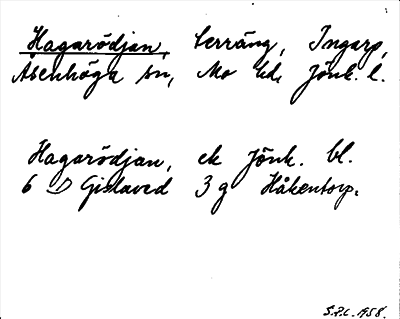 Hagarödjan, terräng, Ingarp,
Åsenhöga sn, Mo hd, Jönk. l.
Hagarödjan, ek Jönk. bl.
6 D Gislaved 3 g Håkentorp.
S.P.L. 1958.